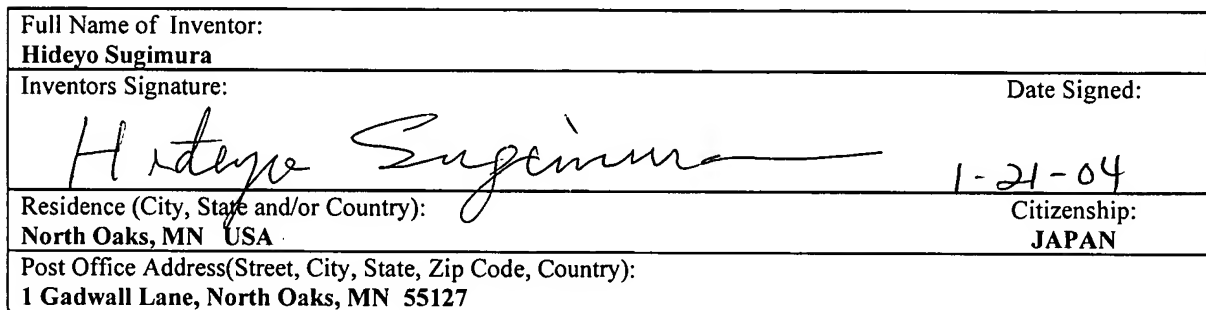 Full Name of Inventor:
Hideyo Sugimura
Inventors Signature: Date Signed:
Hideyo Sugimura 1-21-04
Residence (City, State and/or Country): Citizenship:
North Oaks, MN USA JAPAN
Post Office Address(Street, City, State, Zip Code, Country):
1 Gadwall Lane, North Oaks, MN 55127